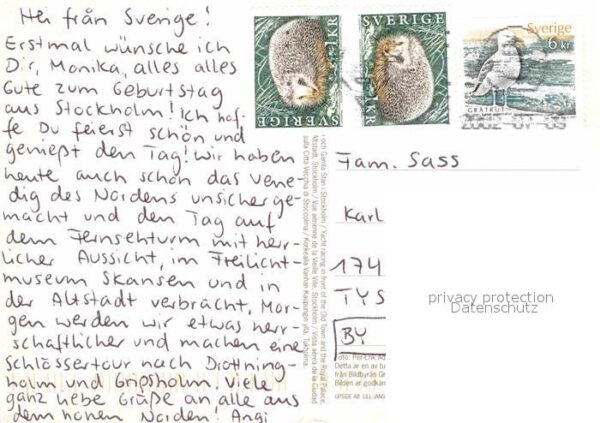 Hei från Sverige!
Erstmal wünsche ich
Dir, Monika, alles alles
Gute zum Geburtstag
aus Stockholm! Ich hof-
fe Du feierst schön und
genießt den Tag! Wir haben
heute auch schon das Vene-
dig des Nordens unsicher ge-
macht und den Tag auf
dem Fernsehturm mit herr-
licher Aussicht, im Freilicht-
museum Skansen und in
der Altstadt verbracht, Mor-
gen werden wir etwas herr-
schaftlicher und machen eine
Schlössertour nach Drottning-
holm und Gripsholm. Viele
ganz liebe Grüße an alle aus
dem hohen Norden! Angi
SVERIGE
1KR
SVERIGE
1KR
Sverige
6 kr
GRÅTRUT
Fam. Sass
Karl
174
TYS
BY
privacy protection
Datenschutz
och Gamla Stan i Stockholm / Yacht racing in front of the Old Town and the Royal Palace,
Altstadt, Stockholm / Vue aérienne de la Vieille Ville, Stockholm / Vista aérea de la Ciudad
sulla Città Vecchia di Stoccolma /
Foto: Per-Erik Ad
Detta är en av b
från Bildbyrån Gr
Bilden är godkän